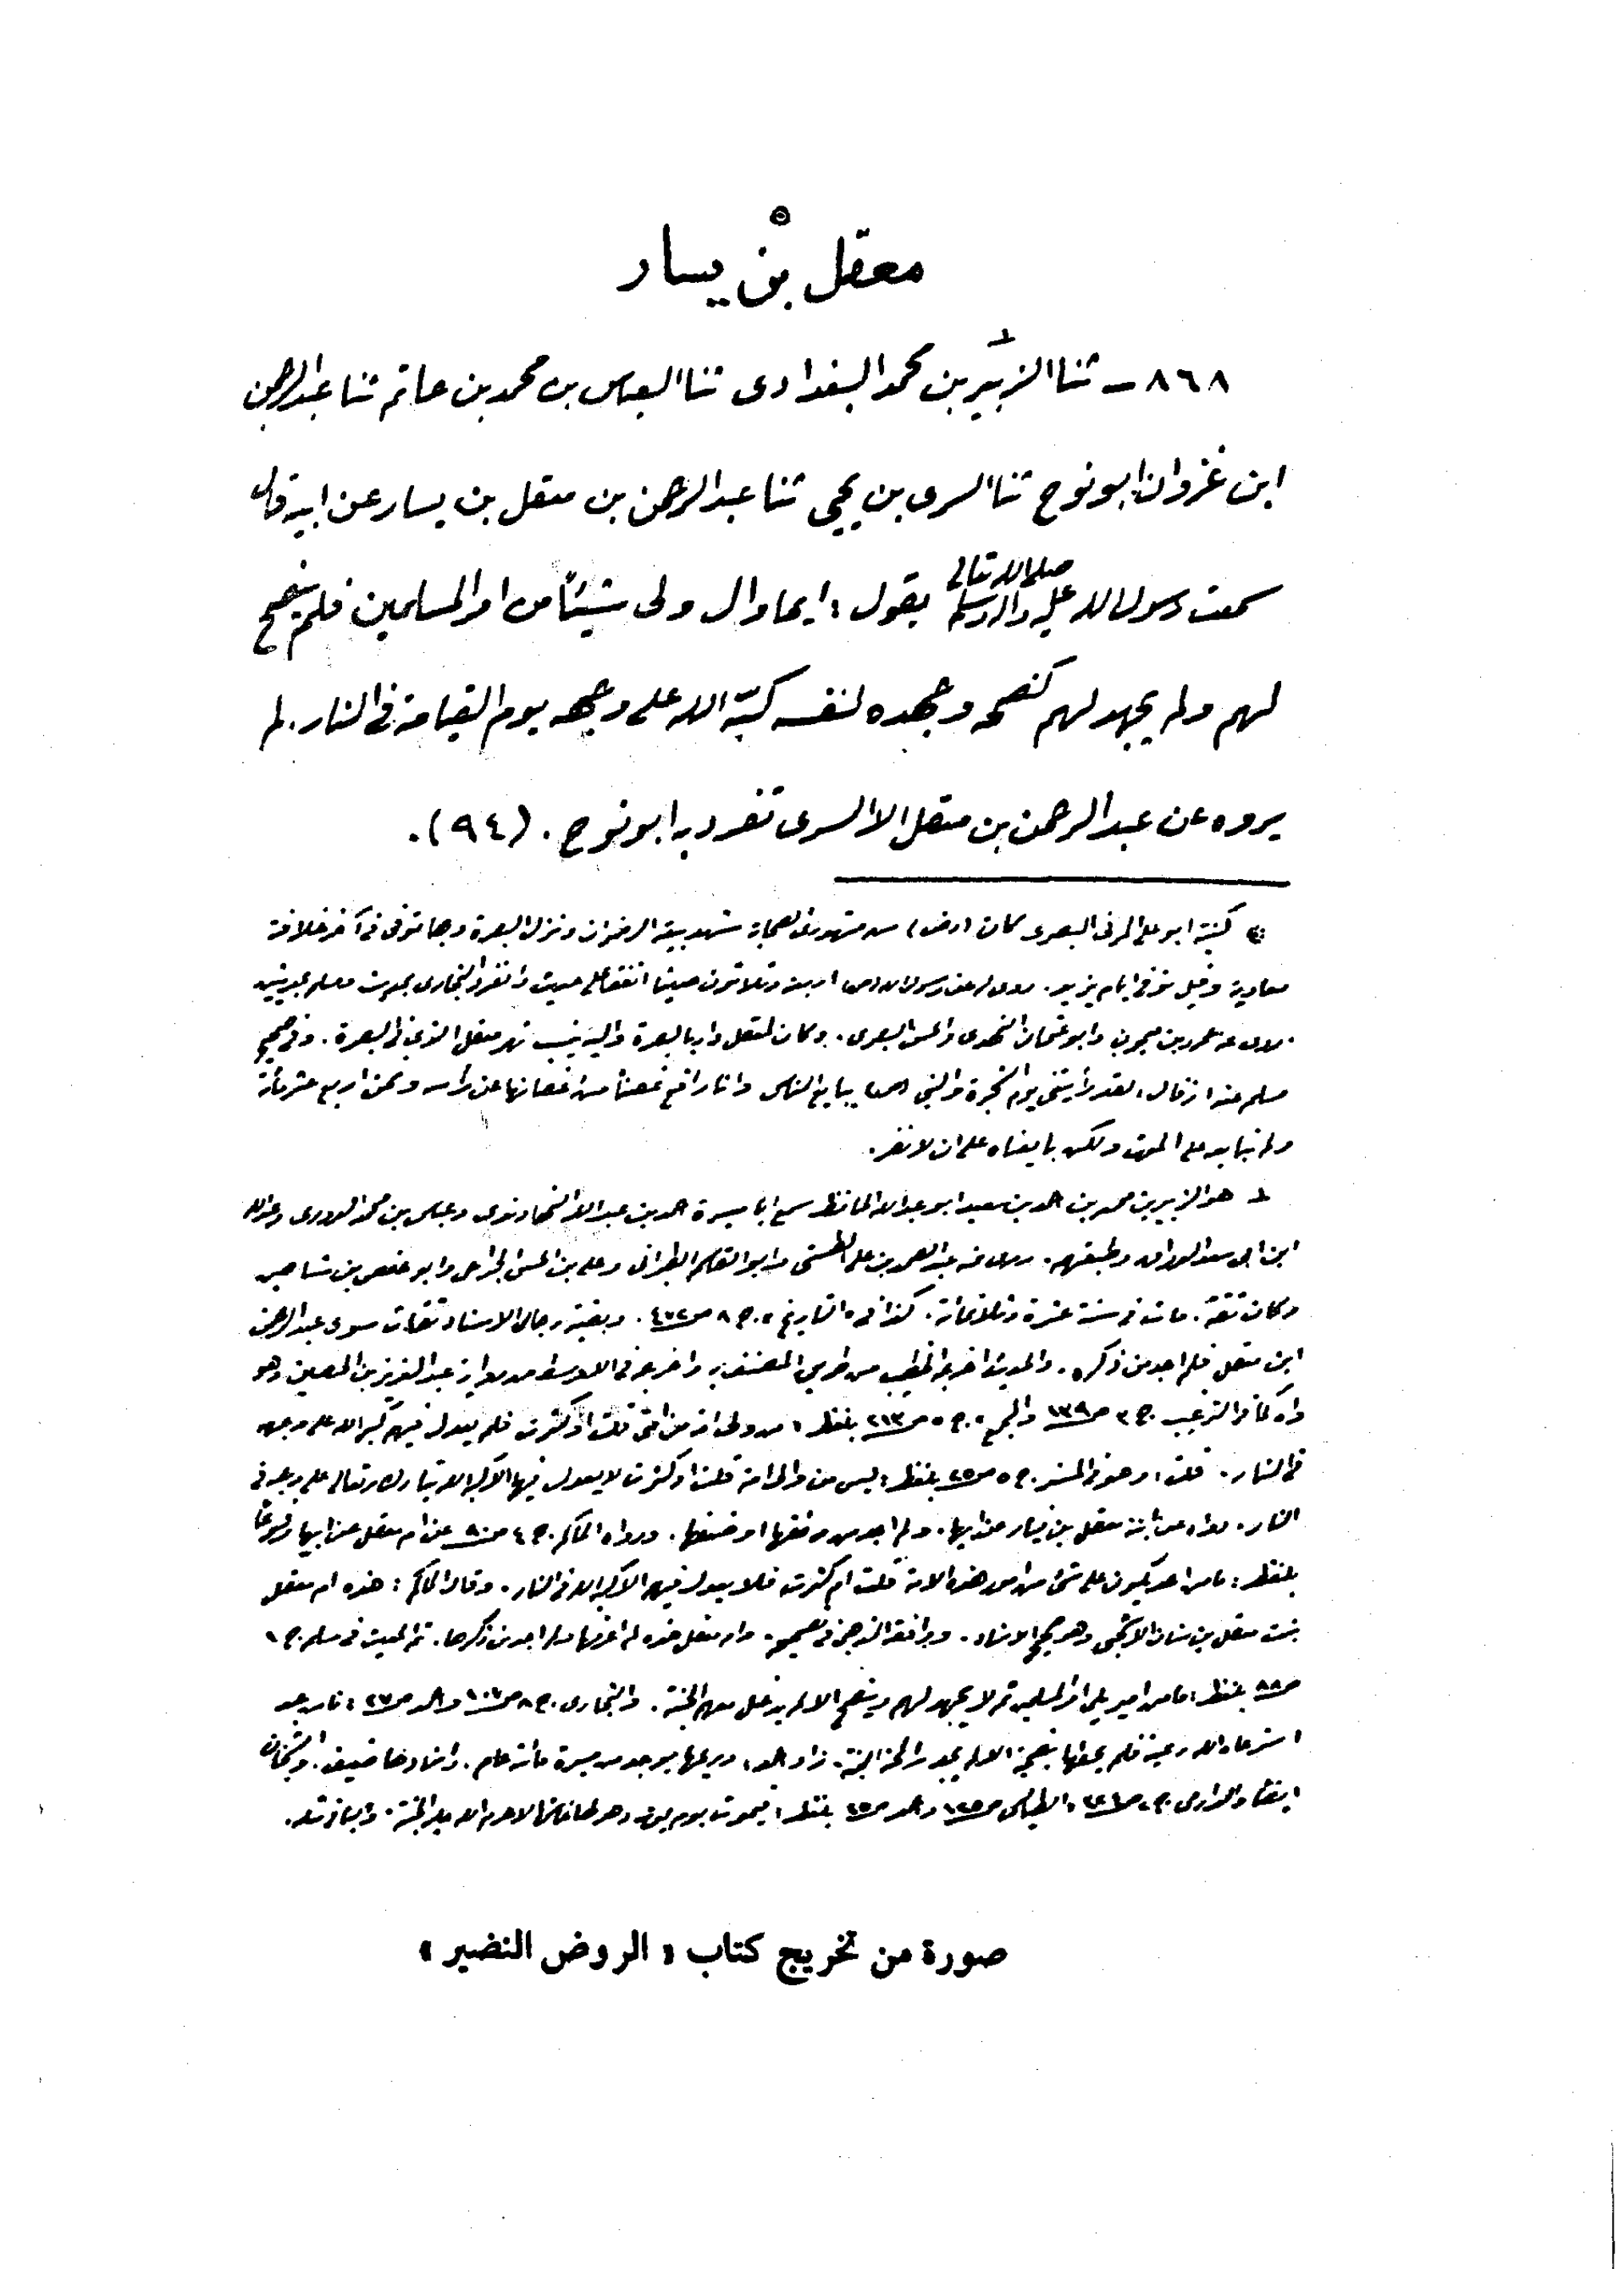 معقل بن يسار
٨٦٨ - ثنا الزبير بن محمد البغدادى ثنا العباس بن محمد بن حاتم ثنا عبدالرحمن
ابن غزوان ابو نوح ثنا السرى بن يحيى ثنا عبدالرحمن بن معقل بن يسار عن ابيه قال
سمعت رسول الله صلى الله تعالى عليه وآله وسلم يقول: ايما وال ولى شيئاً من امر المسلمين فلم ينصح
لهم ولم يجهد لهم كنصحه وجهده لنفسه كبّه الله على وجهه يوم القيامة فى النار. لم
يروه عن عبدالرحمن بن معقل الا السرى تفرد به ابو نوح. (٩٤).
كنيته ابو على المزنى البصرى كان (رض) من مشهورى الصحابة شهد بيعة الرضوان ونزل البصرة وبها توفى فى آخر خلافة
معاوية وقيل توفى ايام يزيد. روى له عن رسول الله (ص) اربعة وثلاثون حديثا اتفقا على حديث وانفرد البخارى بحديث ومسلم بحديثين
روى عنه عمرو بن ميمون وابو عثمان النهدى والحسن البصرى. وكان لمعقل دار بالبصرة واليه ينسب نهر معقل الذى فى البصرة. وفى صحيح
مسلم عنه انه قال: لقد رأيتنى يوم الشجرة والنبى (ص) يبايع الناس وانا رافع غصنا من اغصانها عن رأسه ونحن اربع عشرة مائة
ولم نبايعه على الموت ولكن بايعناه على ان لا نفر.
١ هو الزبير بن محمد بن احمد بن سعيد ابو عبدالله الحافظ سمع ابا ميسرة احمد بن عبدالله النهاوندى وعباس بن محمد الدورى وعبدالله
ابن ابى سعد الوراق وطبقتهم. روى عنه عبدالصمد بن على الطستى وابو القاسم الطبرانى وعلى بن الحسن الجراحى وابو حفص بن شاهين
وكان ثقة. مات فى سنة ست عشرة وثلاثمائة. كذا فى «التاريخ» ج ٨ ص ٤٧٢. وبقية رجال الاسناد ثقات سوى عبدالرحمن
ابن معقل فلم اجد من ذكره. والحديث اخرجه الخطيب من طريق المصنف به واخرجه فى الاوسط من رواية عبدالعزيز بن الحصين وهو
واه كما فى الترغيب ج ٣ ص ١٣٩ والمجمع ج ٥ ص ٢١٣ بلفظ: من ولى امة من امتى قلت او كثرت فلم يعدل فيهم كبه الله على وجهه
فى النار. قلت: وهو فى المسند ج ٥ ص ٢٥ بلفظ: ليس من والى امة قلت او كثرت لا يعدل فيها الا كبه الله تبارك وتعالى على وجهه فى
النار. رواه عن ابنة معقل بن يسار عن ابيها. ولم اجد من وثقها او ضعفها. ورواه الحاكم ج ٤ ص ٩٠ عن ام معقل عن ابيها مرفوعاً
بلفظ: ما من احد يكون على شئ من امور هذه الامة قلت ام كثرت فلا يعدل فيهم الا كبه الله فى النار. وقال الحاكم: هذه ام معقل
بنت معقل بن سنان الاشجعى وهو صحيح الاسناد. ووافقه الذهبى فى تصحيحه. وام معقل هذه لم اعرفها ولم اجد من ذكرها. ثم الحديث فى مسلم ج ١
ص ٨٨ بلفظ: ما من امير يلى امر المسلمين ثم لا يجهد لهم وينصح الا لم يدخل معهم الجنة. والبخارى ج ٨ ص ١٠٧ واحمد ص ٢٧: ما من عبد
استرعاه الله رعية فلم يحطها بنصيحة الا لم يجد رائحة الجنة. زاد احمد: وريحها يوجد من مسيرة مائة عام. واسنادها ضعيف. والشيخان
ايضا والدارمى ج ٢ ص ٣٢٤ والطيالسى ص ١٢٥ واحمد ص ٢٥ بلفظ: يموت يوم يموت وهو غاش لرعيته الا حرم الله عليه الجنة.
صورة من تخريج كتاب «الروض النضير»